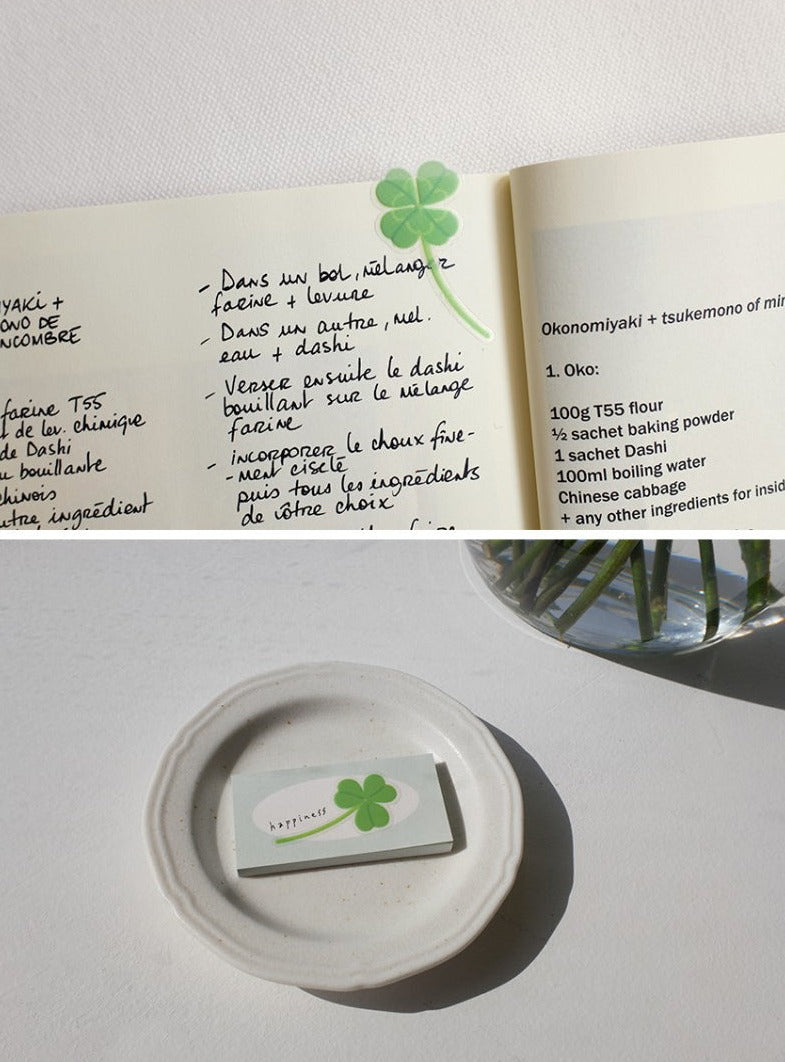 YAKi +
ONO DE
NCOMBRE
farine T55
de lev. chimique
de Dashi
bouillante
chinois
utre ingrédient
- Dans un bol, mélanger
farine + levure
- Dans un autre, mél.
eau + dashi
- Verser ensuite le dashi
bouillant sur le mélange
farine
- incorporer le choux fine-
-ment ciselé
puis tous les ingrédients
de vôtre choix
Okonomiyaki + tsukemono of mi
1. Oko:
100g T55 flour
½ sachet baking powder
1 sachet Dashi
100ml boiling water
Chinese cabbage
+ any other ingredients for insid
happiness